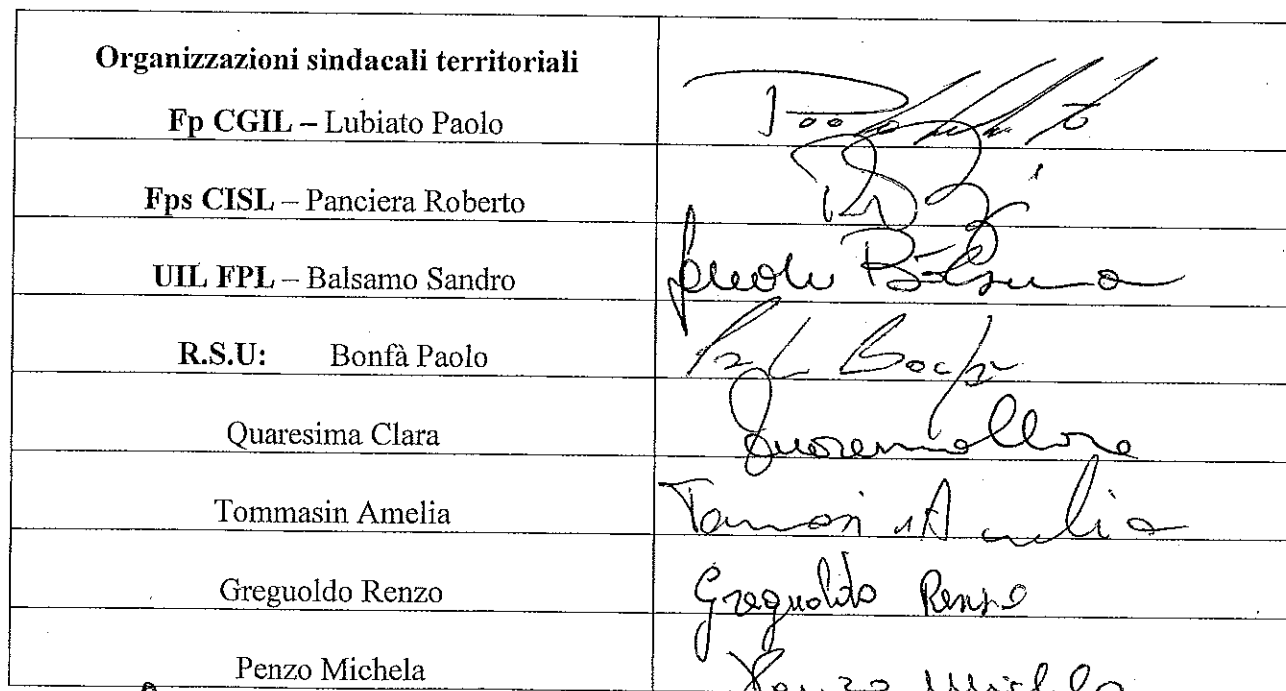 Organizzazioni sindacali territoriali
Fp CGIL – Lubiato Paolo
Fps CISL – Panciera Roberto
UIL FPL – Balsamo Sandro Sandro Balsamo
R.S.U: Bonfà Paolo
Quaresima Clara
Tommasin Amelia Tommasin Amelia
Greguoldo Renzo Greguoldo Renzo
Penzo Michela Penzo Michela